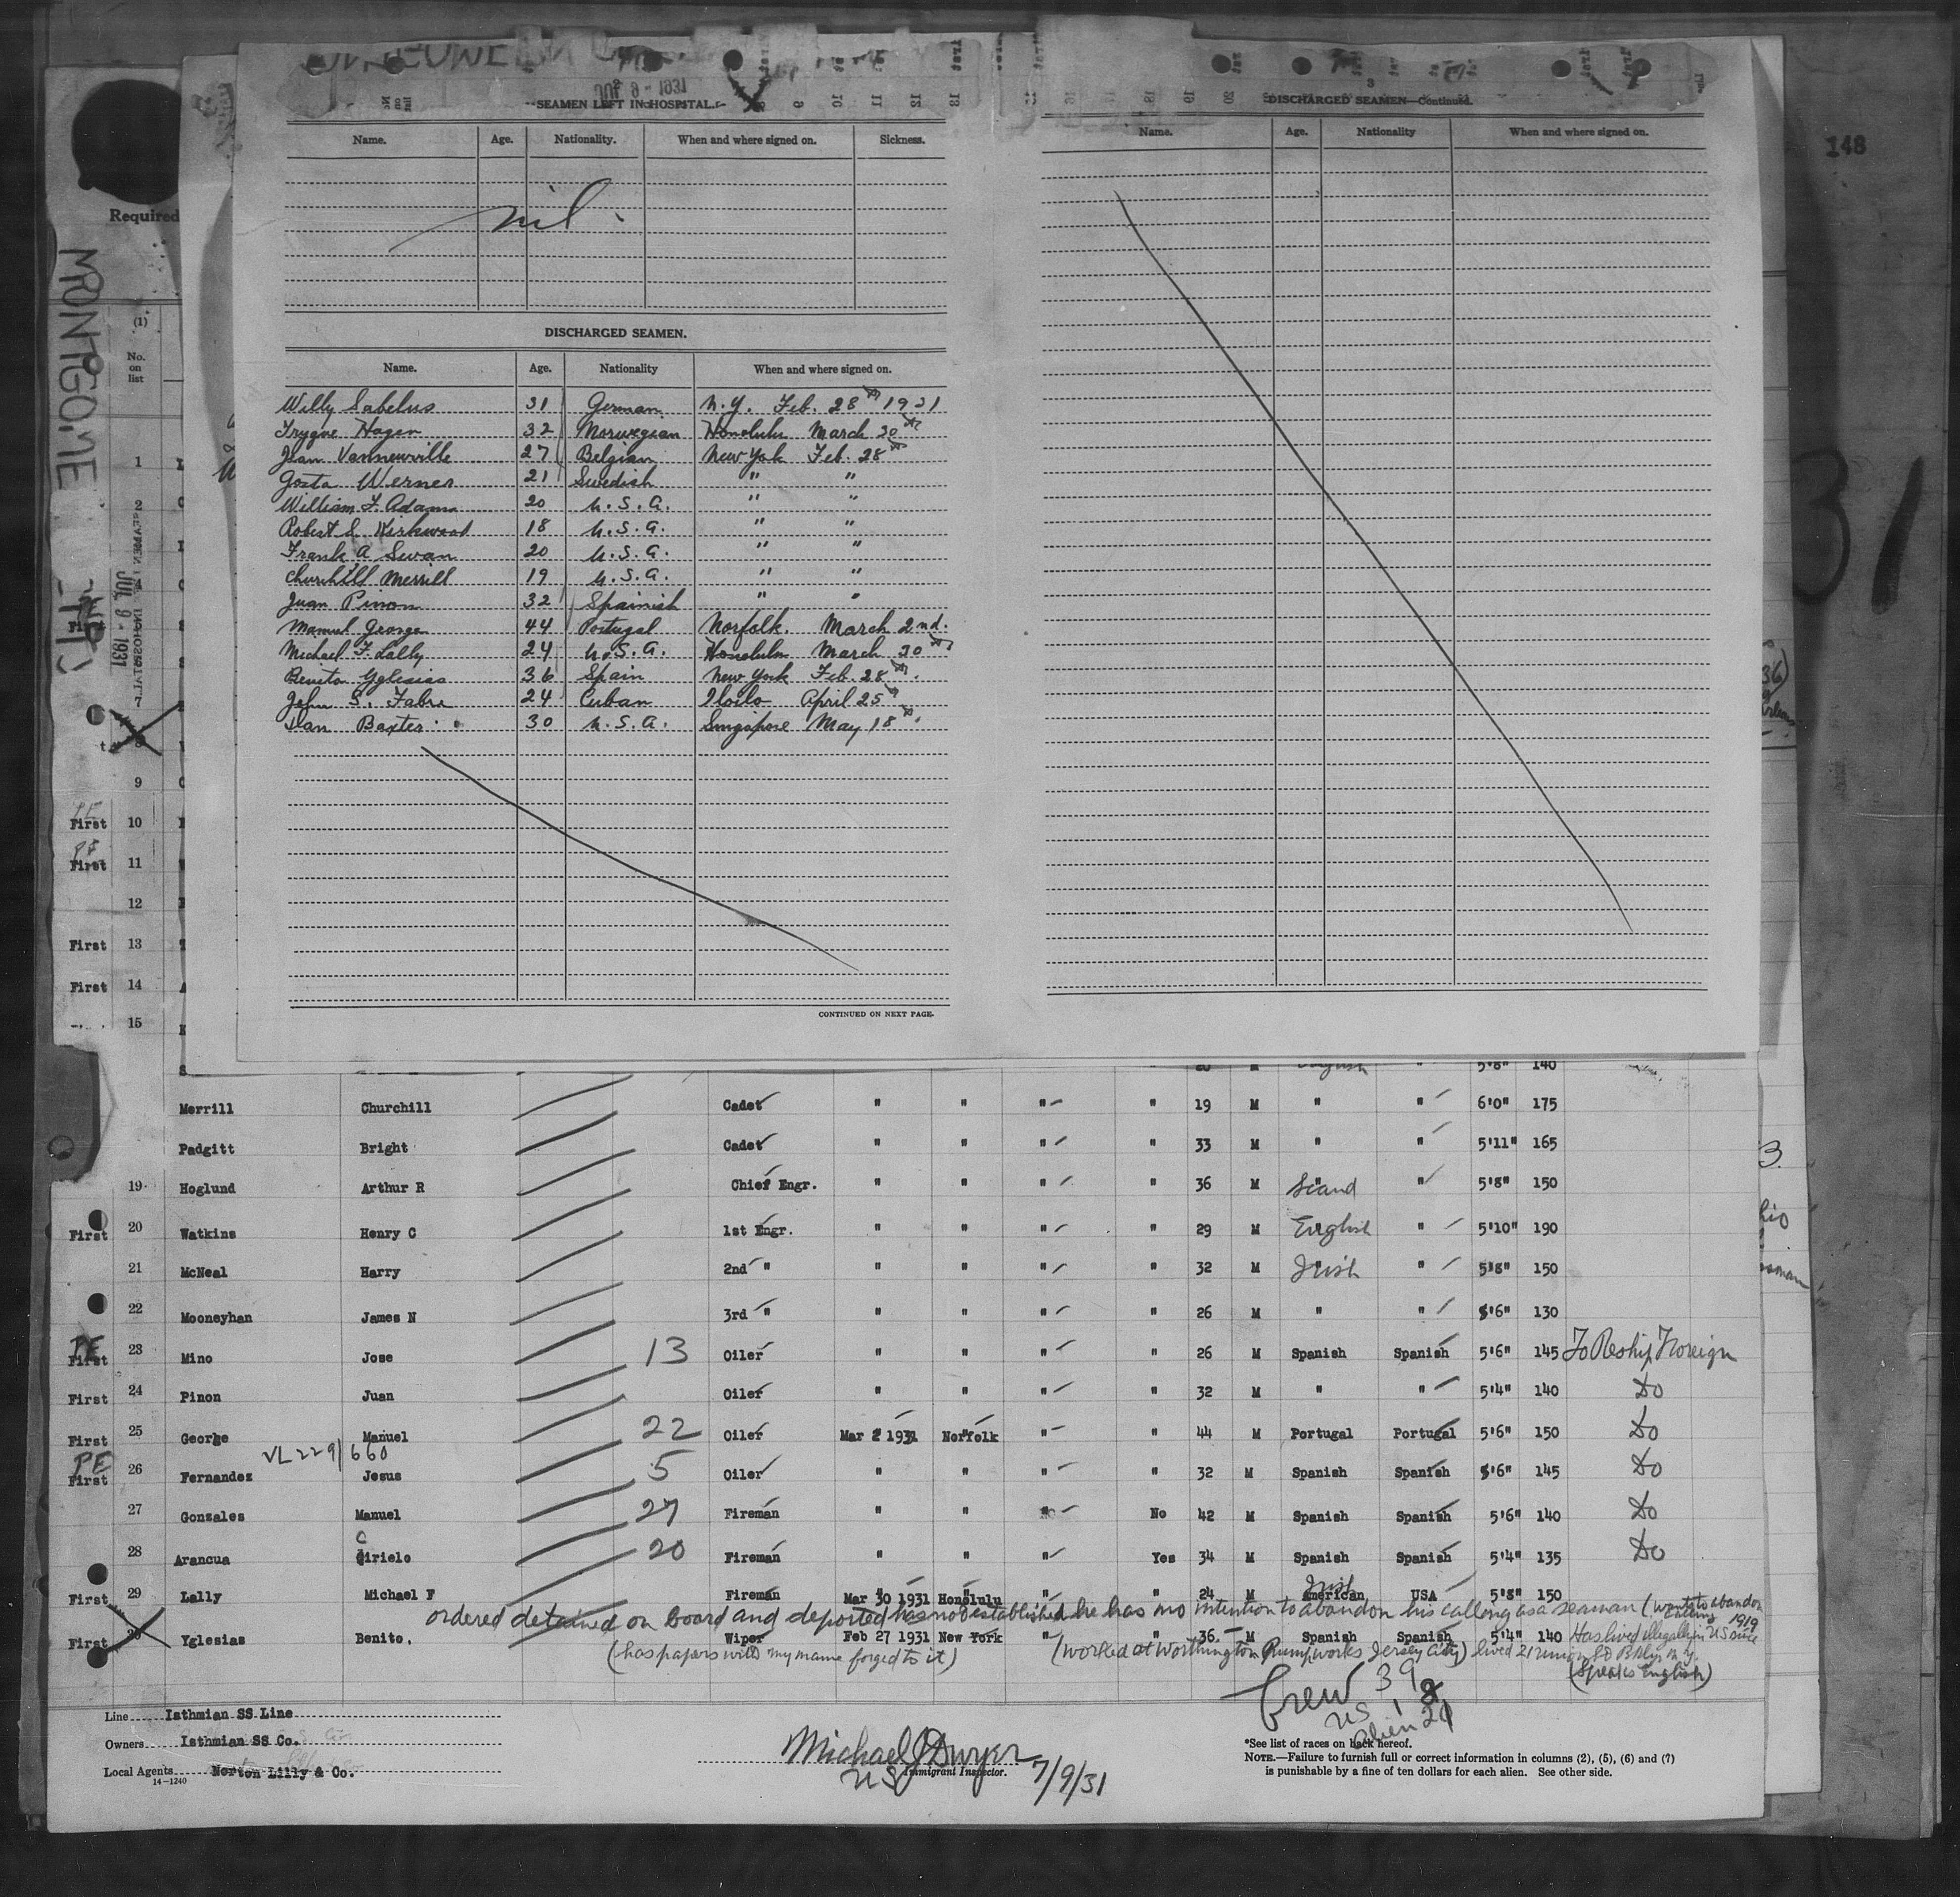 JUL 9 - 1931
SEAMEN LEFT IN HOSPITAL.
Name. Age. Nationality. When and where signed on. Sickness.
nil
DISCHARGED SEAMEN.
Name. Age. Nationality When and where signed on.
Willy Sabelus 31 German N.Y. Feb. 28th 1931
Trygve Hagen 32 Norwegian Honolulu March 30th
Jean Vanneuville 27 Belgian New York Feb. 28th
Gosta Werner 21 Swedish " "
William F. Adams 20 U.S.A. " "
Robert S. Kirkwood 18 U.S.A. " "
Frank A Swan 20 U.S.A. " "
Churchill Merrill 19 U.S.A. " "
Juan Pinon 32 Spainish " "
Manuel George 44 Portugal Norfolk. March 2nd.
Michael F. Lally 24 U.S.A. Honolulu March 30th
Benito Yglesias 36 Spain New York Feb. 28th.
John S. Fabre 24 Cuban Iloilo April 25th
Dan Baxter 30 U.S.A. Singapore May 18th.
CONTINUED ON NEXT PAGE.
3
DISCHARGED SEAMEN—Continued.
Name. Age. Nationality When and where signed on.
148
31
Required
MRONTGOMIE
(1)
No. on list
JUL 9 - 1931
1
2
7
9
First 10
First 11
12
First 13
First 14
15
5'8" 140
Merrill Churchill Cadet " " " " 19 M " " 6'0" 175
Padgitt Bright Cadet " " " " 33 M " " 5'11" 165
19 Hoglund Arthur R Chief Engr. " " " " 36 M Scand " 5'8" 150
First 20 Watkins Henry C 1st Engr. " " " " 29 M English " 5'10" 190
21 McNeal Harry 2nd " " " " " 32 M Irish " 5'8" 150
22 Mooneyhan James N 3rd " " " " " 26 M " " 5'6" 130
PE First 23 Mino Jose 13 Oiler " " " " 26 M Spanish Spanish 5'6" 145 To Reship Foreign
First 24 Pinon Juan Oiler " " " " 32 M " " 5'4" 140 Do
First 25 George Manuel 22 Oiler Mar 2 1931 Norfolk " " 44 M Portugal Portugal 5'6" 150 Do
VL 229/660
PE First 26 Fernandez Jesus 5 Oiler " " " " 32 M Spanish Spanish 5'6" 145 Do
27 Gonzales Manuel 27 Fireman " " No 42 M Spanish Spanish 5'6" 140 Do
28 Arancua Cirielo 20 Fireman " " " Yes 34 M Spanish Spanish 5'4" 135 Do
First 29 Lally Michael F Fireman Mar 30 1931 Honolulu " " 24 M Irish American USA 5'8" 150
ordered detained on board and deported has not established he has no intention to abandon his calling as a seaman (wants to abandon calling
First 30 Yglesias Benito. Wiper Feb 27 1931 New York " " 36 M Spanish Spanish 5'4" 140 Has lived illegally in US since 1919
(has papers with my name forged to it) (worked at Worthington Pump works Jersey City) lived 21 Bklyn N.Y.
(Speaks English)
Crew 39
US 18
Alien 21
Line Isthmian SS Line
Owners Isthmian SS Co.
Local Agents Norton Lilly & Co.
14-1240
Michael J Dwyer
US Immigrant Inspector. 7/9/31
*See list of races on back hereof.
NOTE.—Failure to furnish full or correct information in columns (2), (5), (6) and (7)
is punishable by a fine of ten dollars for each alien. See other side.